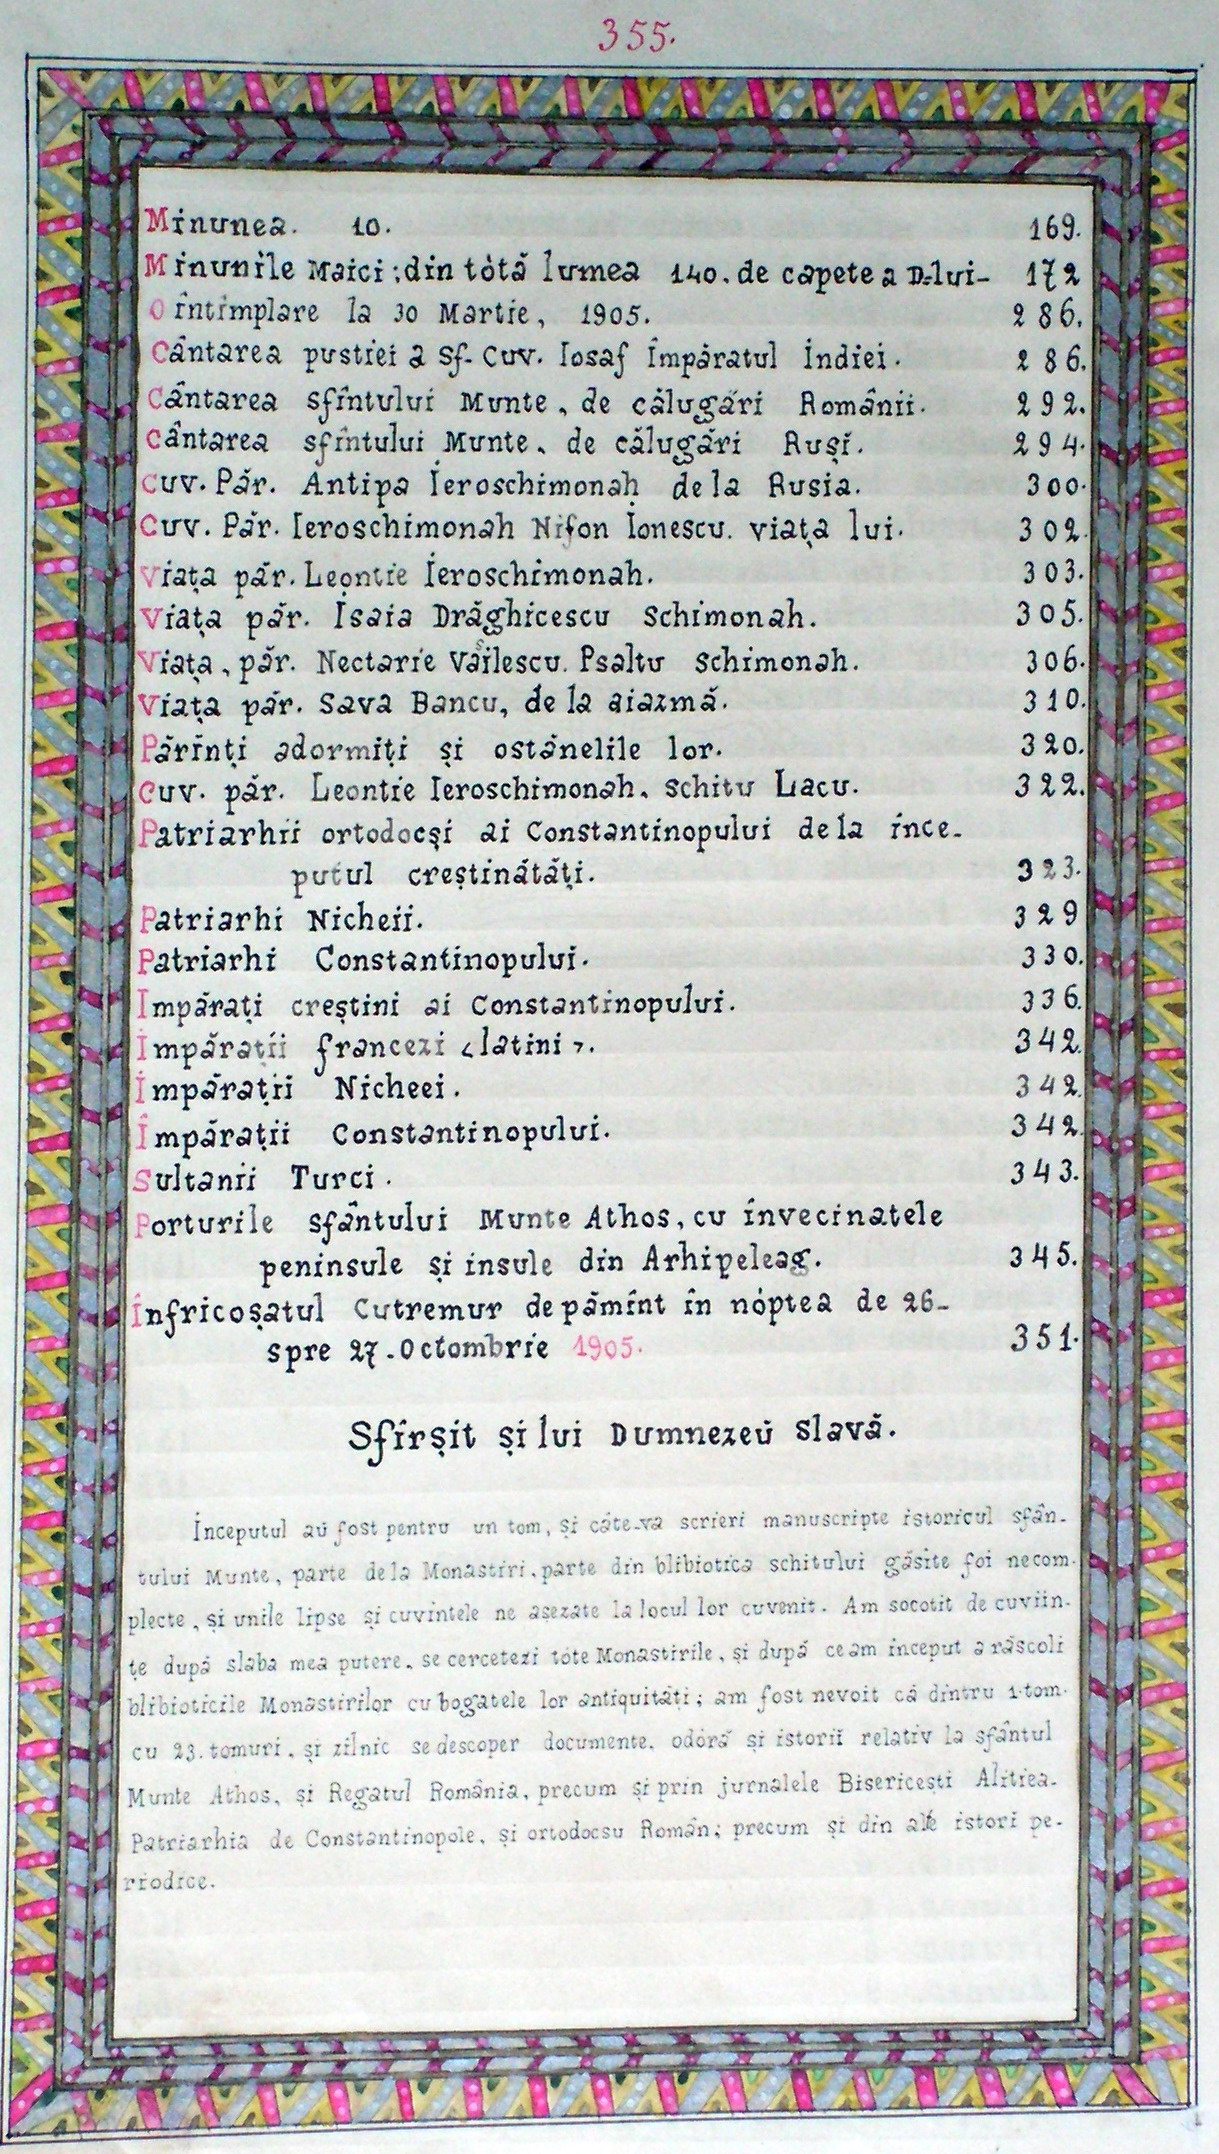 355.
Minunea. 10. 169.
Minunile Maici; din tótă lumea 140. de capete a D-lui- 172
O întîmplare la 30 Martie, 1905. 286.
Cântarea pustiei a Sf- Cuv. Iosaf Împăratul Indiei. 286.
Cântarea sfîntului Munte, de călugări Românii. 292.
Cântarea sfîntului Munte, de călugări Ruși. 294.
Cuv. Păr. Antipa Ieroschimonah de la Rusia. 300.
Cuv. Păr. Ieroschimonah Nifon Ionescu. viața lui. 302.
Viața păr. Leontie Ieroschimonah. 303.
Viața păr. Isaia Drăghicescu Schimonah. 305.
Viața, păr. Nectarie Psaltu Schimonah. 306.
Viața păr. Sava Bancu, de la aiazmă. 310.
Părinți adormiți și ostănelile lor. 320.
Cuv. păr. Leontie Ieroschimonah. Schitu Lacu. 322.
Patriarhii ortodocși ai Constantinopului de la înce-
putul creștinătăți. 323.
Patriarhi Nicheii. 329
Patriarhi Constantinopului. 330.
Impărați creștini ai Constantinopului. 336.
Impărații francezi <latini>. 342.
Impărații Nicheei. 342.
Împărații Constantinopului. 342.
Sultanii Turci. 343.
Porturile sfântului Munte Athos, cu învecinatele
peninsule și insule din Arhipeleag. 345.
Infricoșatul Cutremur de pămînt în nóptea de 26-
spre 27. Octombrie 1905. 351.
Sfîrșit și lui Dumnezeŭ Slavă.
Inceputul aŭ fost pentru un tom, și căte-va scrieri manuscripte istoricul sfân-
tului Munte, parte de la Monastiri, parte din blibiotica schitului găsite foi necom-
plecte, și unile lipse și cuvintele ne așezate la locul lor cuvenit. Am socotit de cuviin-
țe după slaba mea putere, se cercetezi tóte Monastirile, și după ce am inceput a răscoli
blibioticile Monastirilor cu bogatele lor antiquități; am fost nevoit că dintru 1.tom.
cu 23. tomuri, și zilnic se descoper documente, odoră și istorii relativ la sfântul
Munte Athos, și Regatul România, precum și prin jurnalele Bisericești Alitiea-
Patriarhia de Constantinopole, și ortodocsu Român; precum și din alte istori pe-
riodice.